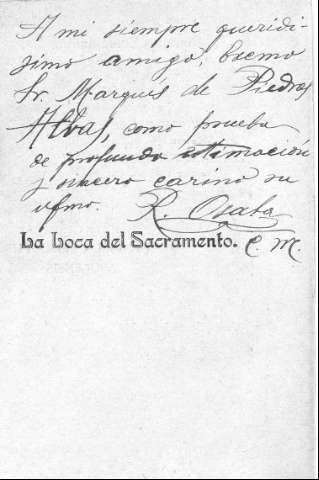 A mi siempre queridi-
simo amigo, Excmo
Sr. Marques de Piedras
Albas, como prueba
de profunda estimacion
y sincero carino su
afmo. R. Osaba
La Loca del Sacramento. C. M.